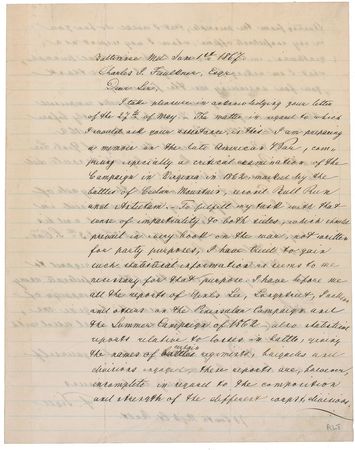 Baltimore Md June 1st 1867.
Charles J. Faulkner, Esqre
Dear Sir,
I take pleasure in acknowledging your letter
of the 27th of May. The matter in regard to which
I would ask your assistance, is this: I am preparing
a memoir on the late American War, com-
prising specially a critical examination of the
Campaign in Virginia in 1862 marked by the
battles of Cedar Mountain, second Bull Run
and Antietam. To fulfill my task with that
sense of impartiality to both sides, which should
prevail in every book on the war, not written
for party purposes, I have tried to gain
such statistical information as seems to me
necessary for that purpose. I have before me
all the reports of Genls Lee, Longstreet, Jackson
and others on the Peninsular Campaign and
the Summer Campaign of 1862, also statistical
reports relative to losses in battle, giving
the names of regiments, brigades and
divisions engaged; these reports are, however,
incomplete in regard to the composition
and strength of the different corps, divisions
ALS